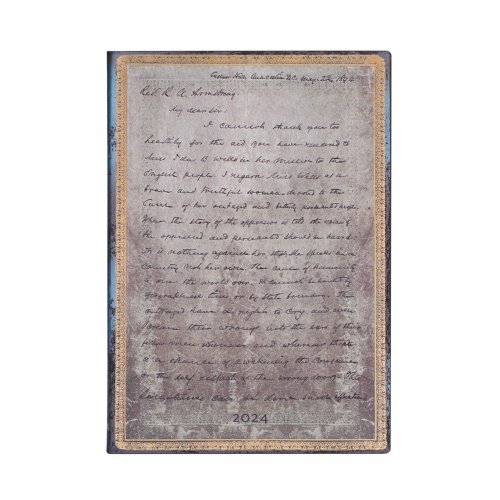 Cedar Hill, Anacostia D.C. May 22nd 1894
Rev. C. A. Armstrong
My dear Sir:
I cannot thank you too
heartily for the aid you have rendered to
Miss Ida B. Wells in her mission to the
English people. I regard Miss Wells as a
brave and truthful woman, devoted to the
Cause of her outraged and bitterly persecuted people.
When the story of the oppressor is told the voice of
the oppressed and persecuted should be heard.
It is nothing against her that she speaks in a
country not her own. The cause of humanity
is one the world over. It cannot be limited by
geographical lines or by State boundaries. The
outraged have a right to Cry and even
their wrongs into the ears of their
fellow men whenever and wherever there
is a chance of awakening the Conscience
or the respect of the wrong doers. The
can be done
2024